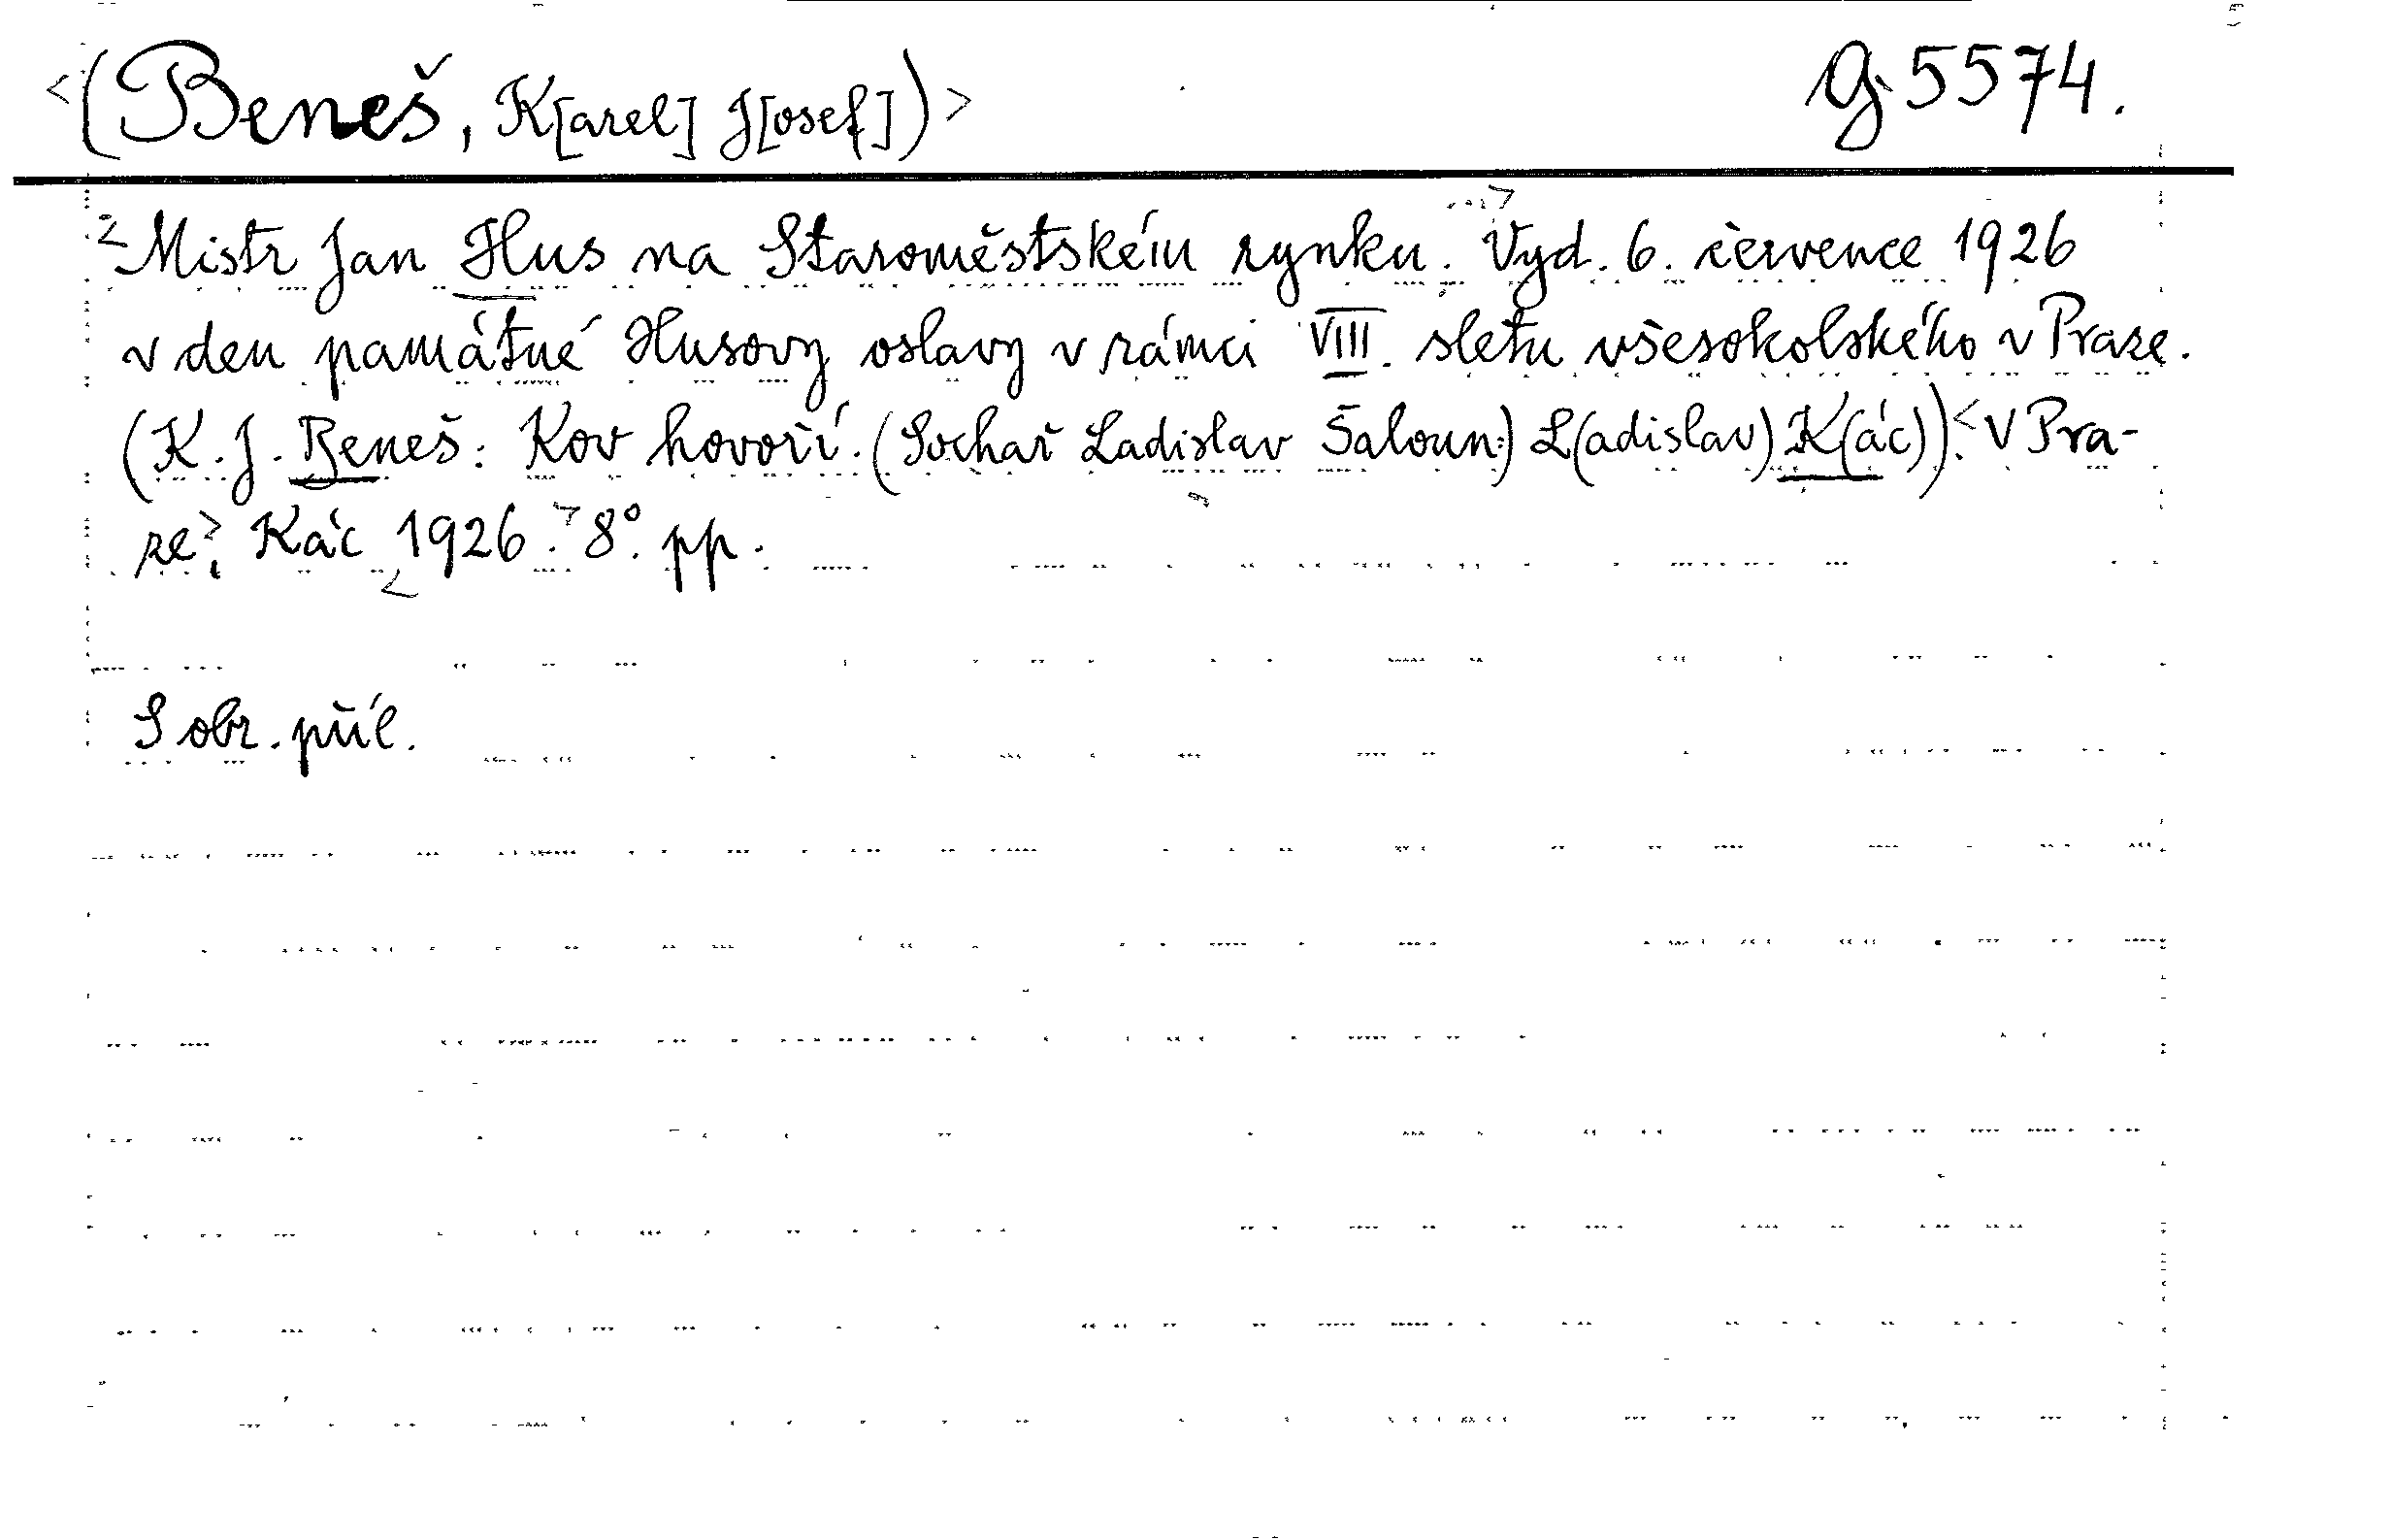 <(Beneš, K[arel] J[osef])> Gj 5574.
Mistr Jan Hus na Staroměstském rynku. Vyd. 6. července 1926
v den památné Husovy oslavy v rámci VIII. sletu všesokolského v Praze.
(K. J. Beneš: Kov hovoří. (Sochař Ladislav Šaloun.) L(adislav) K(ác)). < V Pra-
ze>, Kác < 1926.> 8°. pp.
S obr. příl.